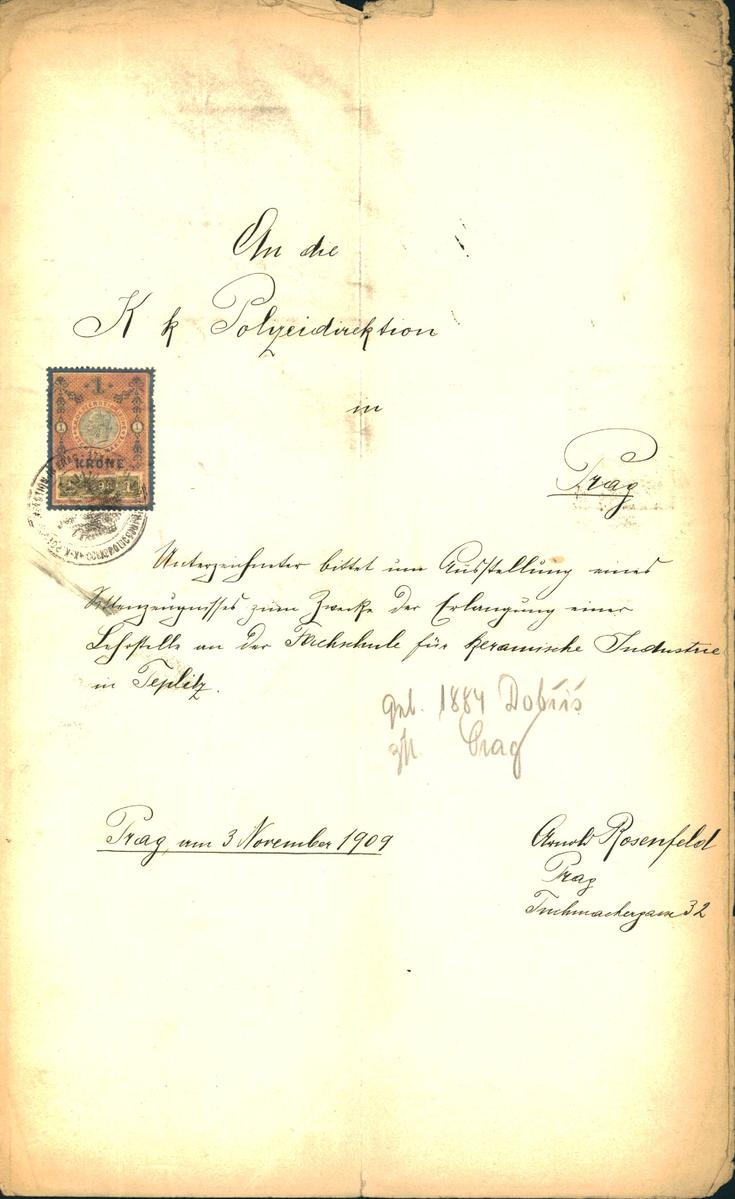 An die
K k Polizeidirektion
in
Prag
1
1 1
KRONE
Unterzeichneter bittet um Ausstellung eines
Sittenzeugnisses zum Zwecke der Erlangung einer
Lehrstelle an der Fachschule für keramische Industrie
in Teplitz.
geb. 1884 Dobříš
Prag
Prag, am 3 November 1909
Arnold Rosenfeld
Prag
Tuchmachergasse 32